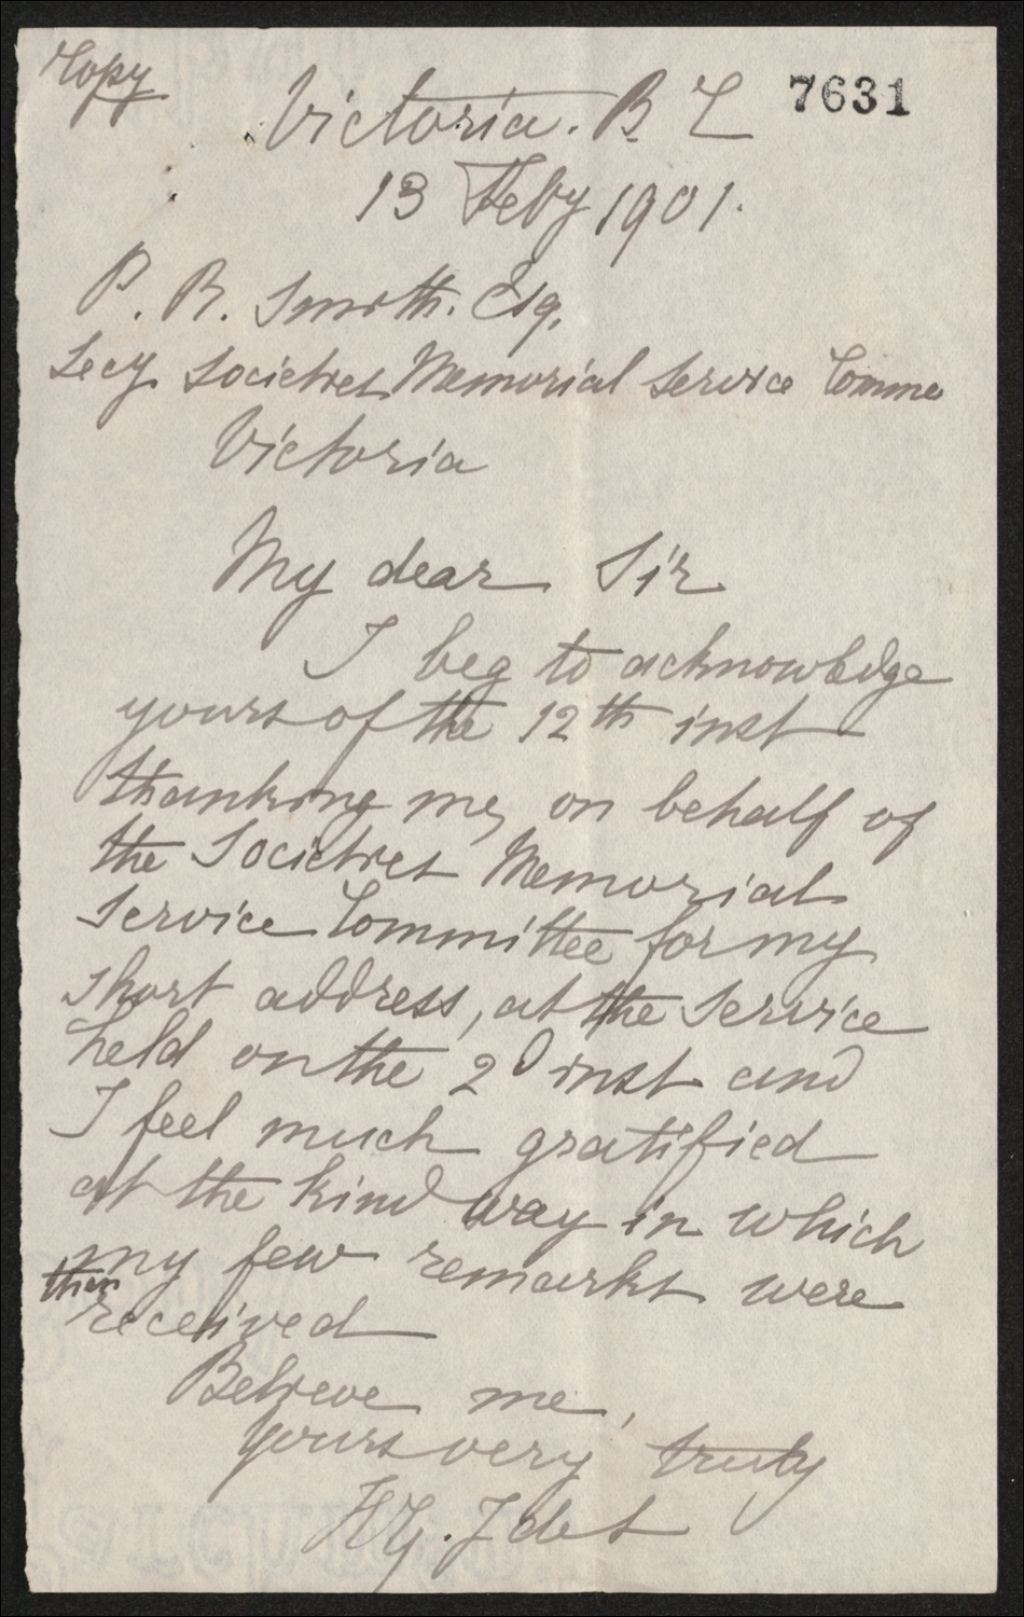 Copy
7631
Victoria. B C
13 Feby 1901.
P. R. Smith. Esq.
Secy. Societies Memorial Service Comme
Victoria
My dear Sir
I beg to acknowledge
yours of the 12th inst
thanking me, on behalf of
the Societies Memorial
Service Committee for my
short address, at the Service
held on the 2d inst and
I feel much gratified
at the kind way in which
my few remarks were
then
received
Believe me,
yours very truly